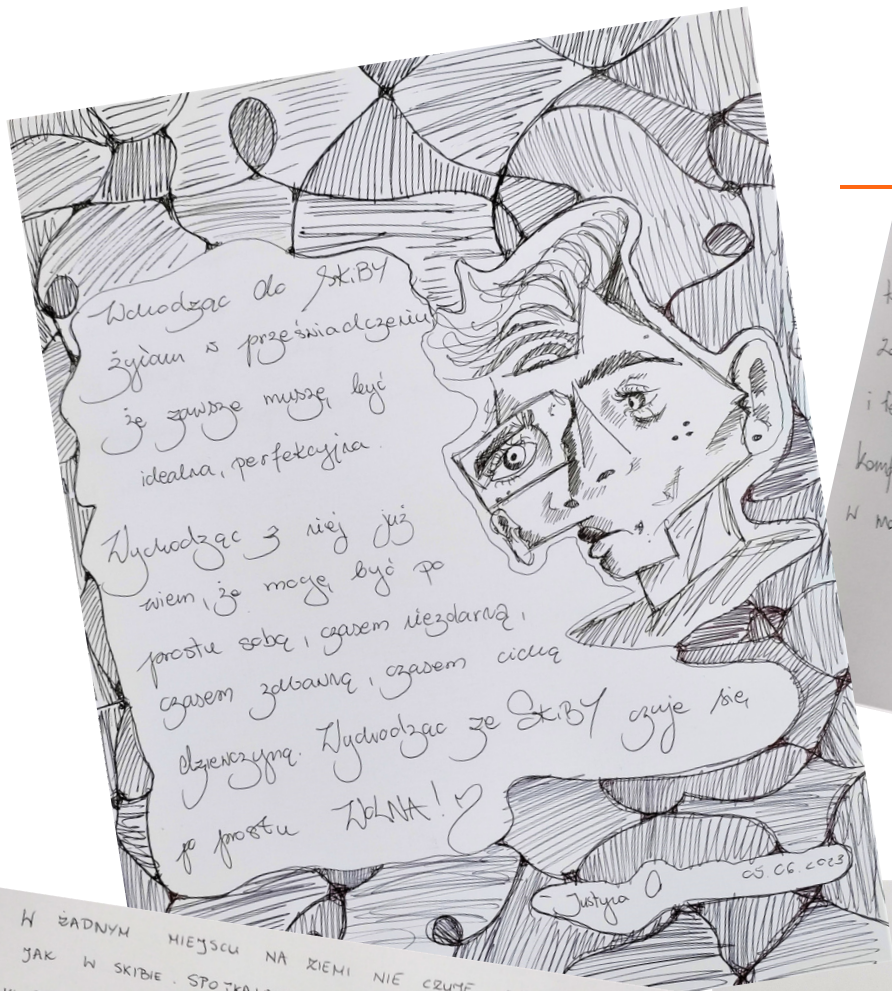 Wchodząc do SKiBY
żyłam w przeświadczeniu
że zawsze muszę być
idealna, perfekcyjna.
Wychodząc z niej już
wiem, że mogę być po
prostu sobą, czasem niezdarną,
czasem zabawną, czasem cichą
dziewczyną. Wychodząc ze SkiBY czuje się
po prostu WOLNA!
Justyna O 05.06.2023
W ŻADNYM MIEJSCU NA ZIEMI NIE CZUŁAM
JAK W SKIBIE.
i
W